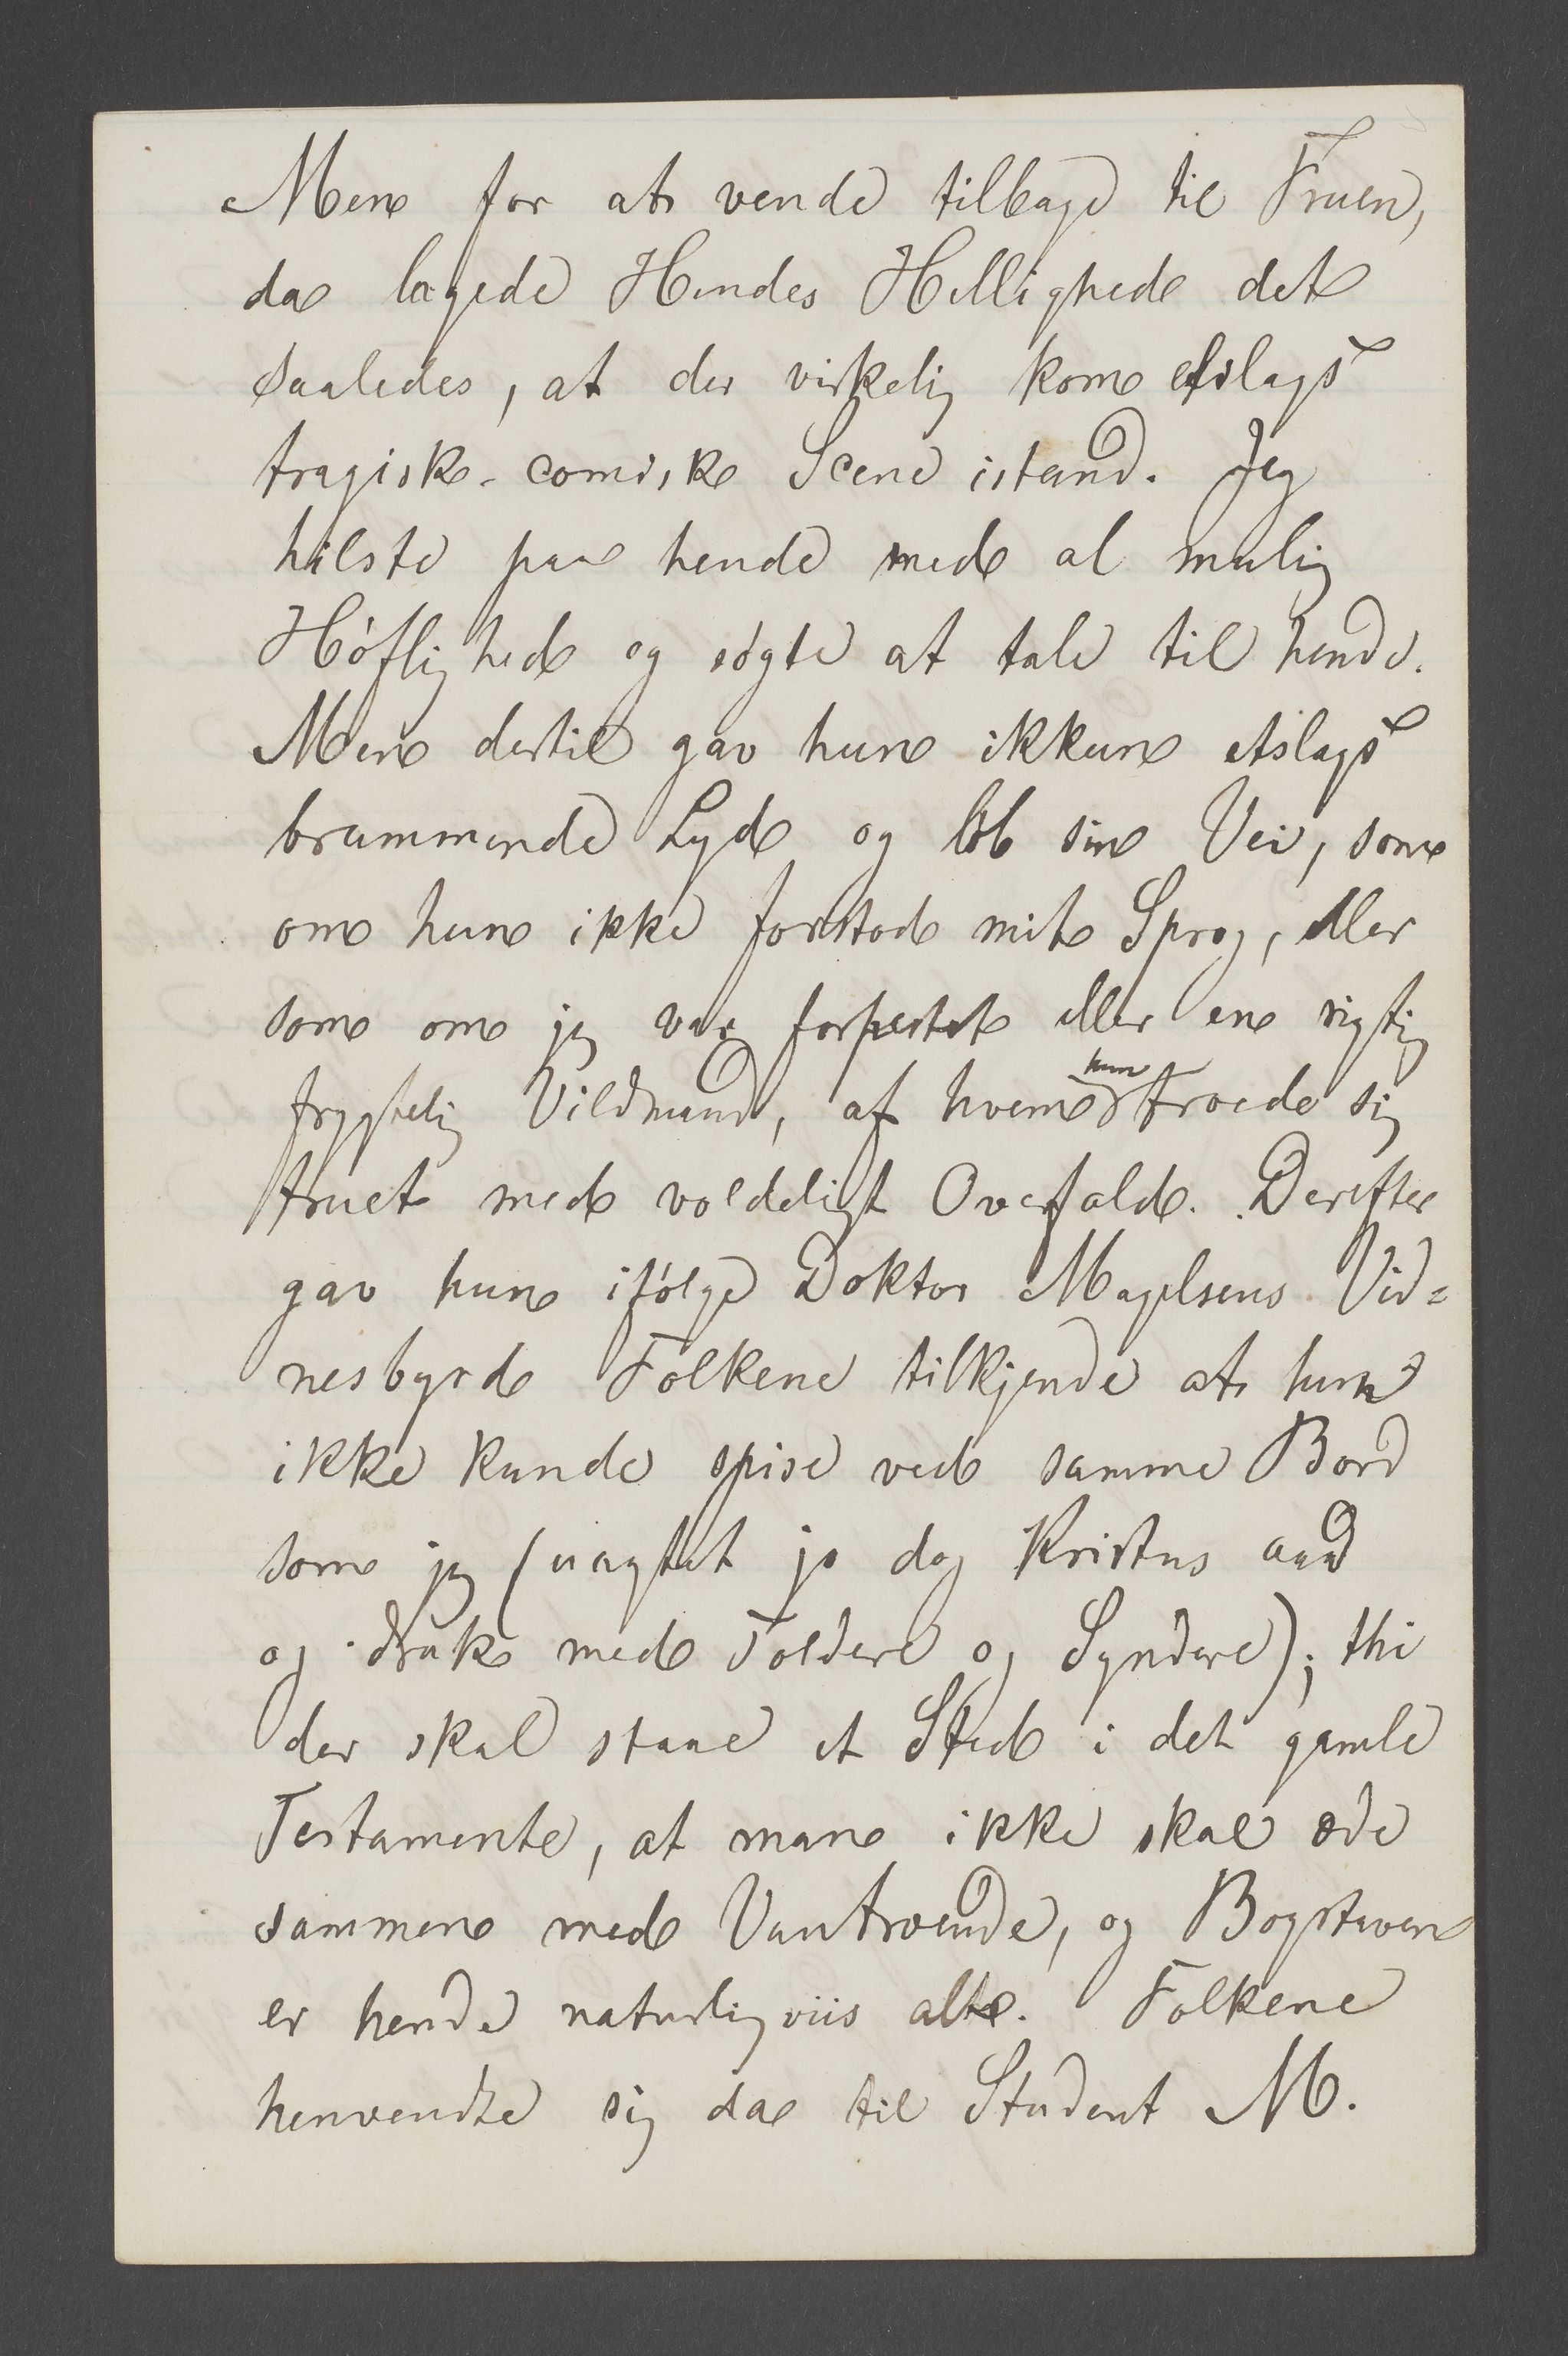 Men for at vende tilbage til Fruen,
da lagede Hendes Hellighed det
saaledes, at der virkelig kom etslags
tragisk-comisk Scene istand. Jeg
hilste paa hende med al mulig
Höflighed og sögte at tale til hende.
Men dertil gav hun ikkun etslags
brummende Lyd og löb sin Vei, som
om hun ikke forstod mit Sprog, eller
som om jeg var forpestet eller en rigtig
frygtelig Vildmand, af hvem hun troede sig
truet med voldeligt Overfald. Derefter
gav hun ifölge Doktor Magelsens Vid=
nesbyrd Folkene tilkjende at hun
ikke kunde spise ved samme Bord
som jeg (uagtet jo dog Kristus aad
og drak med Toldere og Syndere); thi
der skal staae et Sted i det gamle
Testamente, at man ikke skal æde
sammen med Vantroende, og Bogstaven
er hende naturligviis alt. Folkene
henvendte sig da til Student M.